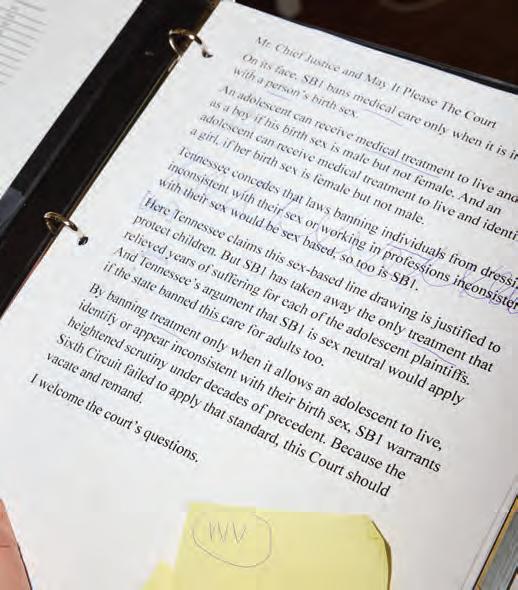 Mr. Chief Justice and May It Please The Court
On its face, SB1 bans medical care only when it is
with a person's birth sex.
An adolescent can receive medical treatment to live and
as a boy if his birth sex is male but not female. And an
adolescent can receive medical treatment to live and
a girl, if her birth sex is female but not male.
Tennessee concedes that laws banning individuals from
inconsistent with their sex or working in professions
with their sex would be sex based, so too is SB1.
Here Tennessee claims this sex-based line drawing is justified to
protect children. But SB1 has taken away the only treatment that
relieved years of suffering for each of the adolescent plaintiffs.
And Tennessee's argument that SB1 is sex neutral would apply
if the state banned this care for adults too.
By banning treatment only when it allows an adolescent to live,
identify or appear inconsistent with their birth sex, SB1 warrants
heightened scrutiny under decades of precedent. Because the
Sixth Circuit failed to apply that standard, this Court should
vacate and remand.
I welcome the court's questions.